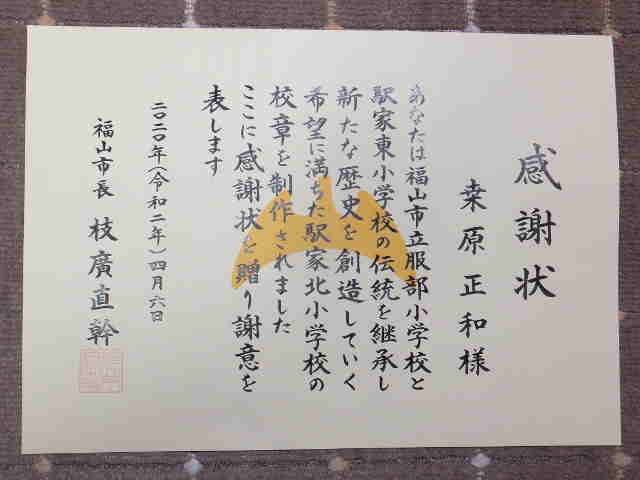 感謝状
桒原正和様
あなたは福山市立服部小学校と
駅家東小学校の伝統を継承し
新たな歴史を創造していく
希望に満ちた駅家北小学校の
校章を制作されました
ここに感謝状を贈り謝意を
表します
二〇二〇年(令和二年)四月六日
福山市長 枝廣直幹